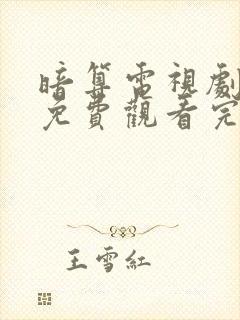 暗算電視劇
免費觀看完
王雪紅